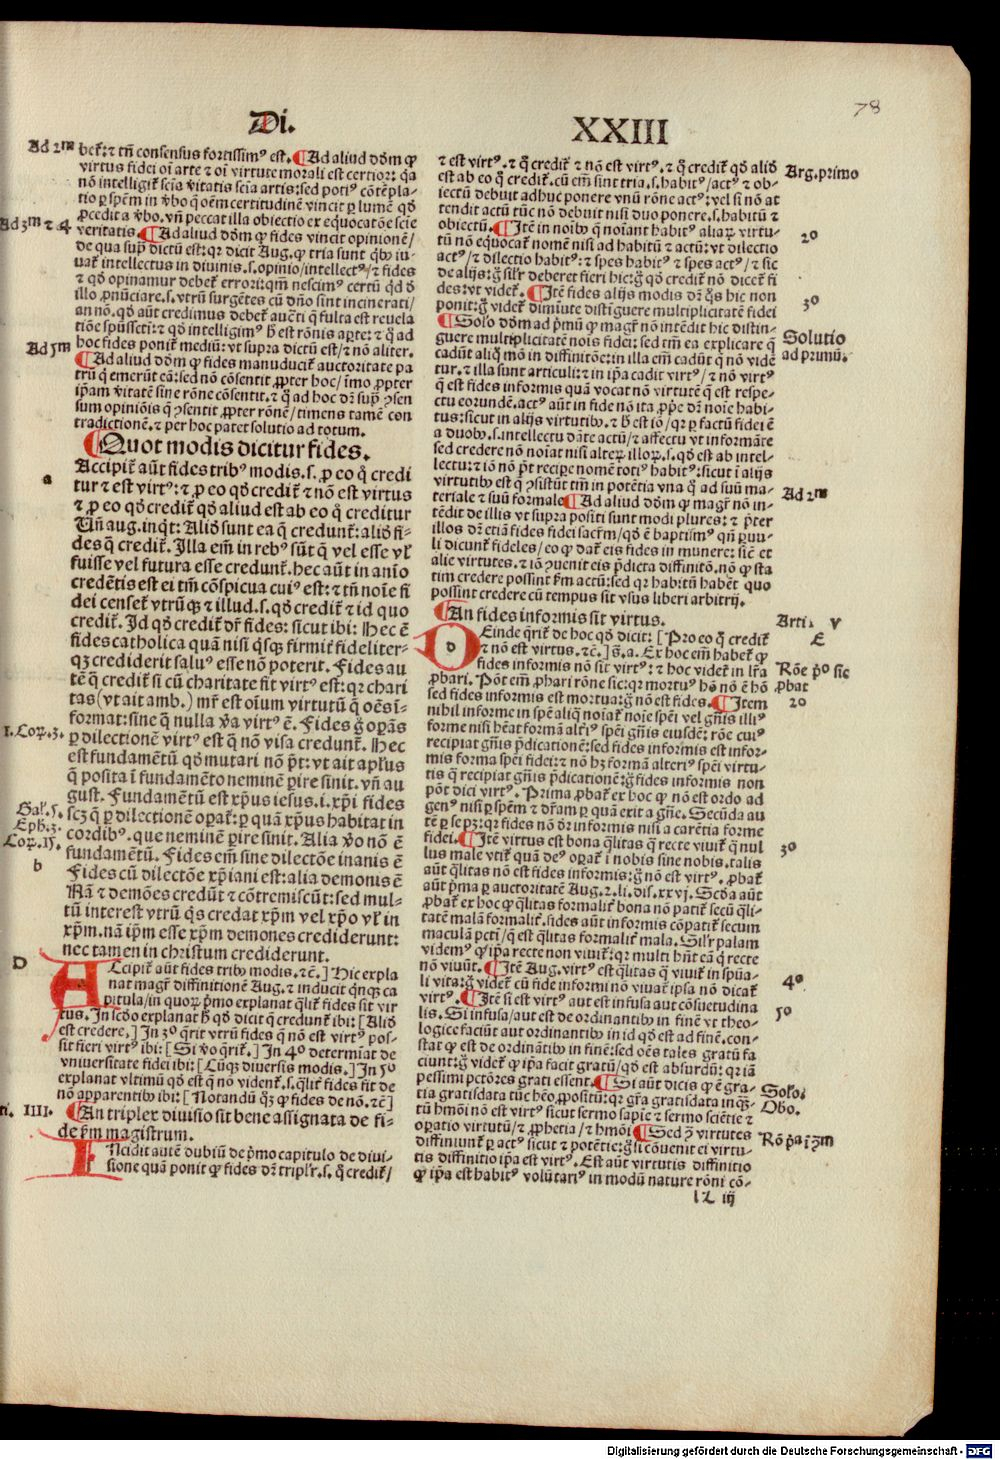 78
Di. XXIII
Ad 2m
bet̃: ⁊ tñ consensus fortissimꝰ est. ¶Ad aliud dōm ꝙ
virtus fidei oi arte ⁊ oi virtute morali est certior: qa
nō intelligit̃ scīa v̓itatis scīa artis: sed potiꝰ cōtēpla-
tio ꝑ spēm in v̓bo q̄ oēm certitudinē vincit ꝑ lumē qd̓
ꝓcedit a v̓bo. vñ peccat illa obiectio ex eq̇uocatōe scie
Ad 3m ⁊ 4
veritatis. ¶Ad aliud dōm ꝙ fides vincit opinionē/
de qua sup̄ dictū est: qr dicit Aug. ꝙ tria sunt q̇bꝰ iu-
uat̃ intellectus in diuinis. s. opinio/intellectꝰ/⁊ fides
⁊ qd̓ opinamur debet̃ errori: qm̄ nescimꝰ certū qd̓ d̓
illo ꝓnūciare. s. vtrū surgētes cū dño sint incinerati/
an nō. qd̓ aūt credimus debet̃ aucti q̄ fulta est reuela
tiōe spūssctī: ⁊ qd̓ intelligimꝰ h̓ est rōnis aꝑte: ⁊ q̄ ad
hoc fides ponit̃ mediū: vt supra dictū est/⁊ nō aliter.
Ad 5m
¶Ad aliud dōm ꝙ fides manuducit̃ auctoritate pa
trū q̄ emerūt eā: sed nō cōsentit ꝓpter hoc/īmo ꝓpter
ip̄am v̓itatē sine rōne cōsentit. ⁊ q̄ ad hoc dr̄ sup̄ ꝯsen
sum opiniōis q̄ ꝯsentit ꝓpter rōnē/timens tamē con
tradictionē. ⁊ per hoc patet solutio ad totum.
¶Quot modis dicitur fides.
a
Accipit̃ aūt fides tribꝰ modis. s. ꝓ eo q̄ credi
tur ⁊ est virtꝰ: ⁊ ꝓ eo qd̓ credit̃ ⁊ nō est virtus
⁊ ꝓ eo qd̓ credit̃ qd̓ aliud est ab eo q̄ creditur
Uñ aug. inq̇t: Aliđ sunt ea q̄ credunt̃: aliđ fi-
des q̄ credit̃. Illa em̄ in rebꝰ sūt q̄ vel esse vl̓
fuisse vel futura esse credunt̃. hec aūt in anīo
credētis est ei tm̄ cōspicua cuiꝰ est: ⁊ tñ noīe fi
dei censet̃ vtrūq̨ ⁊ illud. s. qd̓ credit̃ ⁊ id quo
credit̃. Id qd̓ credit̃ dr̄ fides: sicut ibi: Hec ē
fides catholica quā nisi q̇sq̨ firmit̃ fideliter-
qꝫ crediderit saluꝰ esse nō poterit. Fides au
tē q̄ credit̃ si cū charitate fit virtꝰ est: qr chari
tas (vt ait amb.) mr̄ est oium virtutū q̄ oēs ī-
format: sine q̄ nulla v̓a virtꝰ ē. Fides g̊ oꝑās
1. Coꝝ. 3.
ꝑ dilectionē virtꝰ est q̄ nō visa credunt̃. Hec
est fundamētū qd̓ mutari nō p̄t: vt ait apl̓us
q̄ posita ī fundamēto neminē ꝑire sinit. vñ au
gust. Fundamētū est xp̄us iesus. i. xp̄i fides
Gal̓. 5.
scꝫ q̄ ꝑ dilectionē oꝑat̃: ꝑ quā xp̄us habitat in
Eph. 3.
cordibꝰ. que neminē ꝑire sinit. Alia v̓o nō ē
Coꝝ. 15.
fundamētū. Fides em̄ sine dilectōe inanis ē
b
Fides cū dilectōe xp̄iani est: alia demonis ē
Nā ⁊ demōes credūt ⁊ cōtremiscūt: sed mul-
tū interest vtrū q̇s credat xp̄m vel xp̄o vl̓ in
xp̄m. nā ip̄m esse xp̄m demones crediderunt:
nec tamen in christum crediderunt.
D
Accipit̃ aūt fides tribꝰ modis. ⁊c̄.] Hic expla
nat magr̄ diffinitionē Aug. ⁊ inducit q̇nqꝫ ca
pitula/in quoꝝ p̄mo explanat q̄lit̃ fides sit vir
tus. In scđo explanat h̓ qd̓ dicit q̄ credunt̃ ibi: [Aliđ
est credere.] In 3º q̄rit vtrū fides q̄ nō est virtꝰ pos-
sit fieri virtꝰ ibi: [Si v̓o q̄rit̃.] In 4º determīat de
vniuersitate fidei ibi: [Cūqꝫ diuersis modis.] In 5º
explanat vltimū qd̓ est q̄ nō vident̃. s. q̄lit̃ fides fit de
nō apparentibꝰ ibi: [Notandū q̄ꝫ ꝙ fides de nō. ⁊c̄]
ti. IIII.
¶An triplex diuisio sit bene assignata de fi-
de ꝑm magistrum.
INcidit autē dubiū de p̄mo capitulo de diui-
sione quā ponit ꝙ fides dr̄ tripl̓r. s. q̄ credit̃/
⁊ est virtꝰ. ⁊ q̄ credit̃ ⁊ nō est virtꝰ. ⁊ q̄ credit̃ qd̓ aliđ
Arg. primo
est ab eo q̄ credit̃. cū em̄ sint tria. s. habitꝰ/actꝰ ⁊ ob-
iectū debuit adhuc ponere vnū rōne actꝰ: vel si nō at
tendit actū tūc nō debuit nisi duo ponere. s. habitū ⁊
obiectū. ¶Itē in noībꝰ q̄ noīant habitꝰ aliaꝝ virtu-
2º
tū nō equocat̃ nomē nisi ad habitū ⁊ actū: vt dilectio
actꝰ/⁊ dilectio habitꝰ: ⁊ spes habitꝰ ⁊ spes actꝰ/⁊ sic
de alijs: g̊ sil̓r deberet fieri hic: g̊ qd̓ credit̃ nō dicet̃ fi
des: vt videt̃. ¶Itē fides alijs modis dr̄ q̇s hic non
3º
ponit: g̊ videt̃ dimiute distīguere multiplicitatē fidei
¶Solo dōm ad p̄mū ꝙ magr̄ nō intēdit hic distin-
Solutio
guere multiplicitatē nois fidei: sed tm̄ ea explicare q̄
ad primū.
cadūt aliq̄ mō in diffinitōe: in illa em̄ cadūt q̄ nō vidē
tur. ⁊ illa sunt articuli: ⁊ in ip̄a cadit virtꝰ/⁊ nō virtꝰ
q̄ est fides informis quā vocat nō virtutē q̄ est respe-
ctu eorundē. actꝰ aūt in fide nō ita ꝓp̄e dr̄ noīe habi-
tus: sicut in alijs virtutibꝰ. ⁊ h̓ est iō/qr ꝑ factū fidei ē
a duobꝰ. s. intellectu dāte actū/⁊ affectu vt informāte
sed credere nō noīat nisi alteꝝ illoꝝ. s. qd̓ est ab intel-
lectu: ⁊ iō nō p̄t recipe nomē totiꝰ habitꝰ: sicut ī alijs
virtutibꝰ est q̄ ꝯsistūt tm̄ in potētia vna q̄ ad suū ma-
teriale ⁊ suū formale ¶Ad aliud dōm ꝙ magr̄ nō in-
Ad 2m
tēdit de illis vt supra positi sunt modi plures: ⁊ p̄ter
illos dr̄ etiā fides fidei sacrm̄/qd̓ ē baptismꝰ qñ ꝑuu-
li dicunt̃ fideles/eo ꝙ dat̃ eis fides in munere: sic ē et
alie virtutes. ⁊ iō ꝯuenit eis p̄dicta diffinitō. nō ꝙ sta
tim credere possint ẜm actū: sed qr habitū habēt quo
possint credere cū tempus sit vsus liberi arbitrij.
¶An fides informis sit virtus.
Arti. V
DEinde q̄rit̃ de hoc qd̓ dicit: [Pro eo q̄ credit̃
E
⁊ nō est virtus. ⁊c̄.] g̊. a. Ex hoc em̄ habet̃ ꝙ
fides informis nō sit virtꝰ: ⁊ hoc videt̃ in lr̄a
Rōe p̄º sic
ꝓbari. Pōt em̄ ꝓbari rōne sic: qr mortuꝰ hō nō ē hō
ꝓbat
sed fides informis est mortua: g̊ nō est fides. ¶Item
2º
nihil informe in spē aliq̄ noiat̃ noīe spēi vel gn̄is illiꝰ
forme nisi hēat formā altiꝰ spēi gn̄is eiusdē: rōe cuiꝰ
recipiat gn̄is p̄dicationē: sed fides informis est infor-
mis forma spēi fidei: ⁊ nō hꝫ formā alteriꝰ spēi virtu-
tis q̄ recipiat gn̄is p̄dicationē: g̊ fides informis non
pōt dici virtꝰ. Prima ꝓbat̃ ex hoc ꝙ nō est ordo ad
genꝰ nisi ꝑ spēm ⁊ dr̄am ꝑ quā exit a gn̄e. Secūda au
tē ꝑ se pꝫ: qr fides nō dr̄ informis nisi a carētia forme
fidei. ¶Itē virtus est bona q̄litas q̄ recte viuit̃ q̄ nul
3º
lus male vtit̃ quā deꝰ oꝑat̃ ī nobis sine nobis. talis
aūt q̄litas nō est fides informis: g̊ nō est virtꝰ. ꝓbat̃
aūt p̄ma ꝑ auctoritatē Aug. 2. li. dis. xxvj. Scđa aūt
ꝓbat̃ ex hoc ꝙ q̄litas formalit̃ bona nō patit̃ secū q̄li-
tatē malā formalit̃. fides aūt informis cōpatit̃ secum
maculā pctī/q̄ est q̄litas formalit̃ mala. Sil̓r palam
videmꝰ ꝙ ip̄a recte non viuit̃: qr multi hn̄t eā q̄ recte
nō viuūt. ¶Itē Aug. virtꝰ est q̄litas q̄ viuit̃ in spūa-
4º
li vita: g̊ videt̃ cū fide informi nō viuat̃ ip̄sa nō dicat̃
virtꝰ. ¶Itē si est virtꝰ aut est infusa aut cōsuetudina
5º
lis. Si infusa/aut est de ordinantibꝰ in finē vt theo-
logice faciūt aut ordinantibꝰ in id qd̓ est ad finē. con-
stat ꝙ est de ordinātibꝰ in finē: sed oēs tales gratū fa
ciunt: g̊ videt̃ ꝙ ip̄a facit gratū/qd̓ est absurdū: qr iā
pessimi pctōres grati essent. ¶Si aūt dicis ꝙ ē gra-
Solo.
tia gratisdata tūc hēo ꝓpositū: qr gr̄a gratisdata inqꝫ-
Obo.
tū hmōi nō est virtꝰ sicut sermo sapīe ⁊ sermo sciētie ⁊
oꝑatio virtutū/⁊ ꝓphetia/⁊ hmōi ¶Sed ꝫ virtutes
Rō p̄a ī ꝫm
diffiniunt̃ ꝑ actꝰ sicut ⁊ potētie: g̊ si cōuenit ei virtu-
tis diffinitio ip̄a est virtꝰ. Est aūt virtutis diffinitio
ꝙ ip̄a est habitꝰ volūtariꝰ in modū nature rōni cō-
lL iij
Digitalisierung gefördert durch die Deutsche Forschungsgemeinschaft - DFG